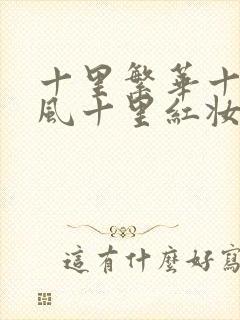 十里繁華十
風十里紅妝
這有什麼好寫